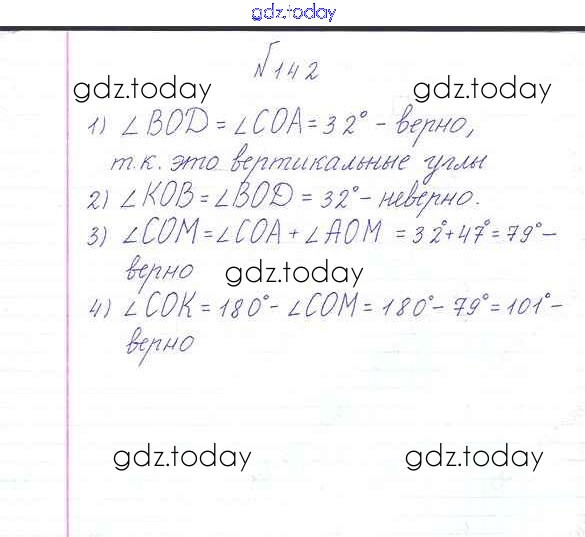 gdz.today
№142
gdz.today gdz.today
1) ∠BOD = ∠COA = 32° - верно,
т.к. это вертикальные углы
2) ∠KOB = ∠BOD = 32° - неверно.
3) ∠COM = ∠COA + ∠AOM = 32°+47°=79° -
верно gdz.today
4) ∠COK = 180° - ∠COM = 180° - 79° = 101° -
верно
gdz.today gdz.today